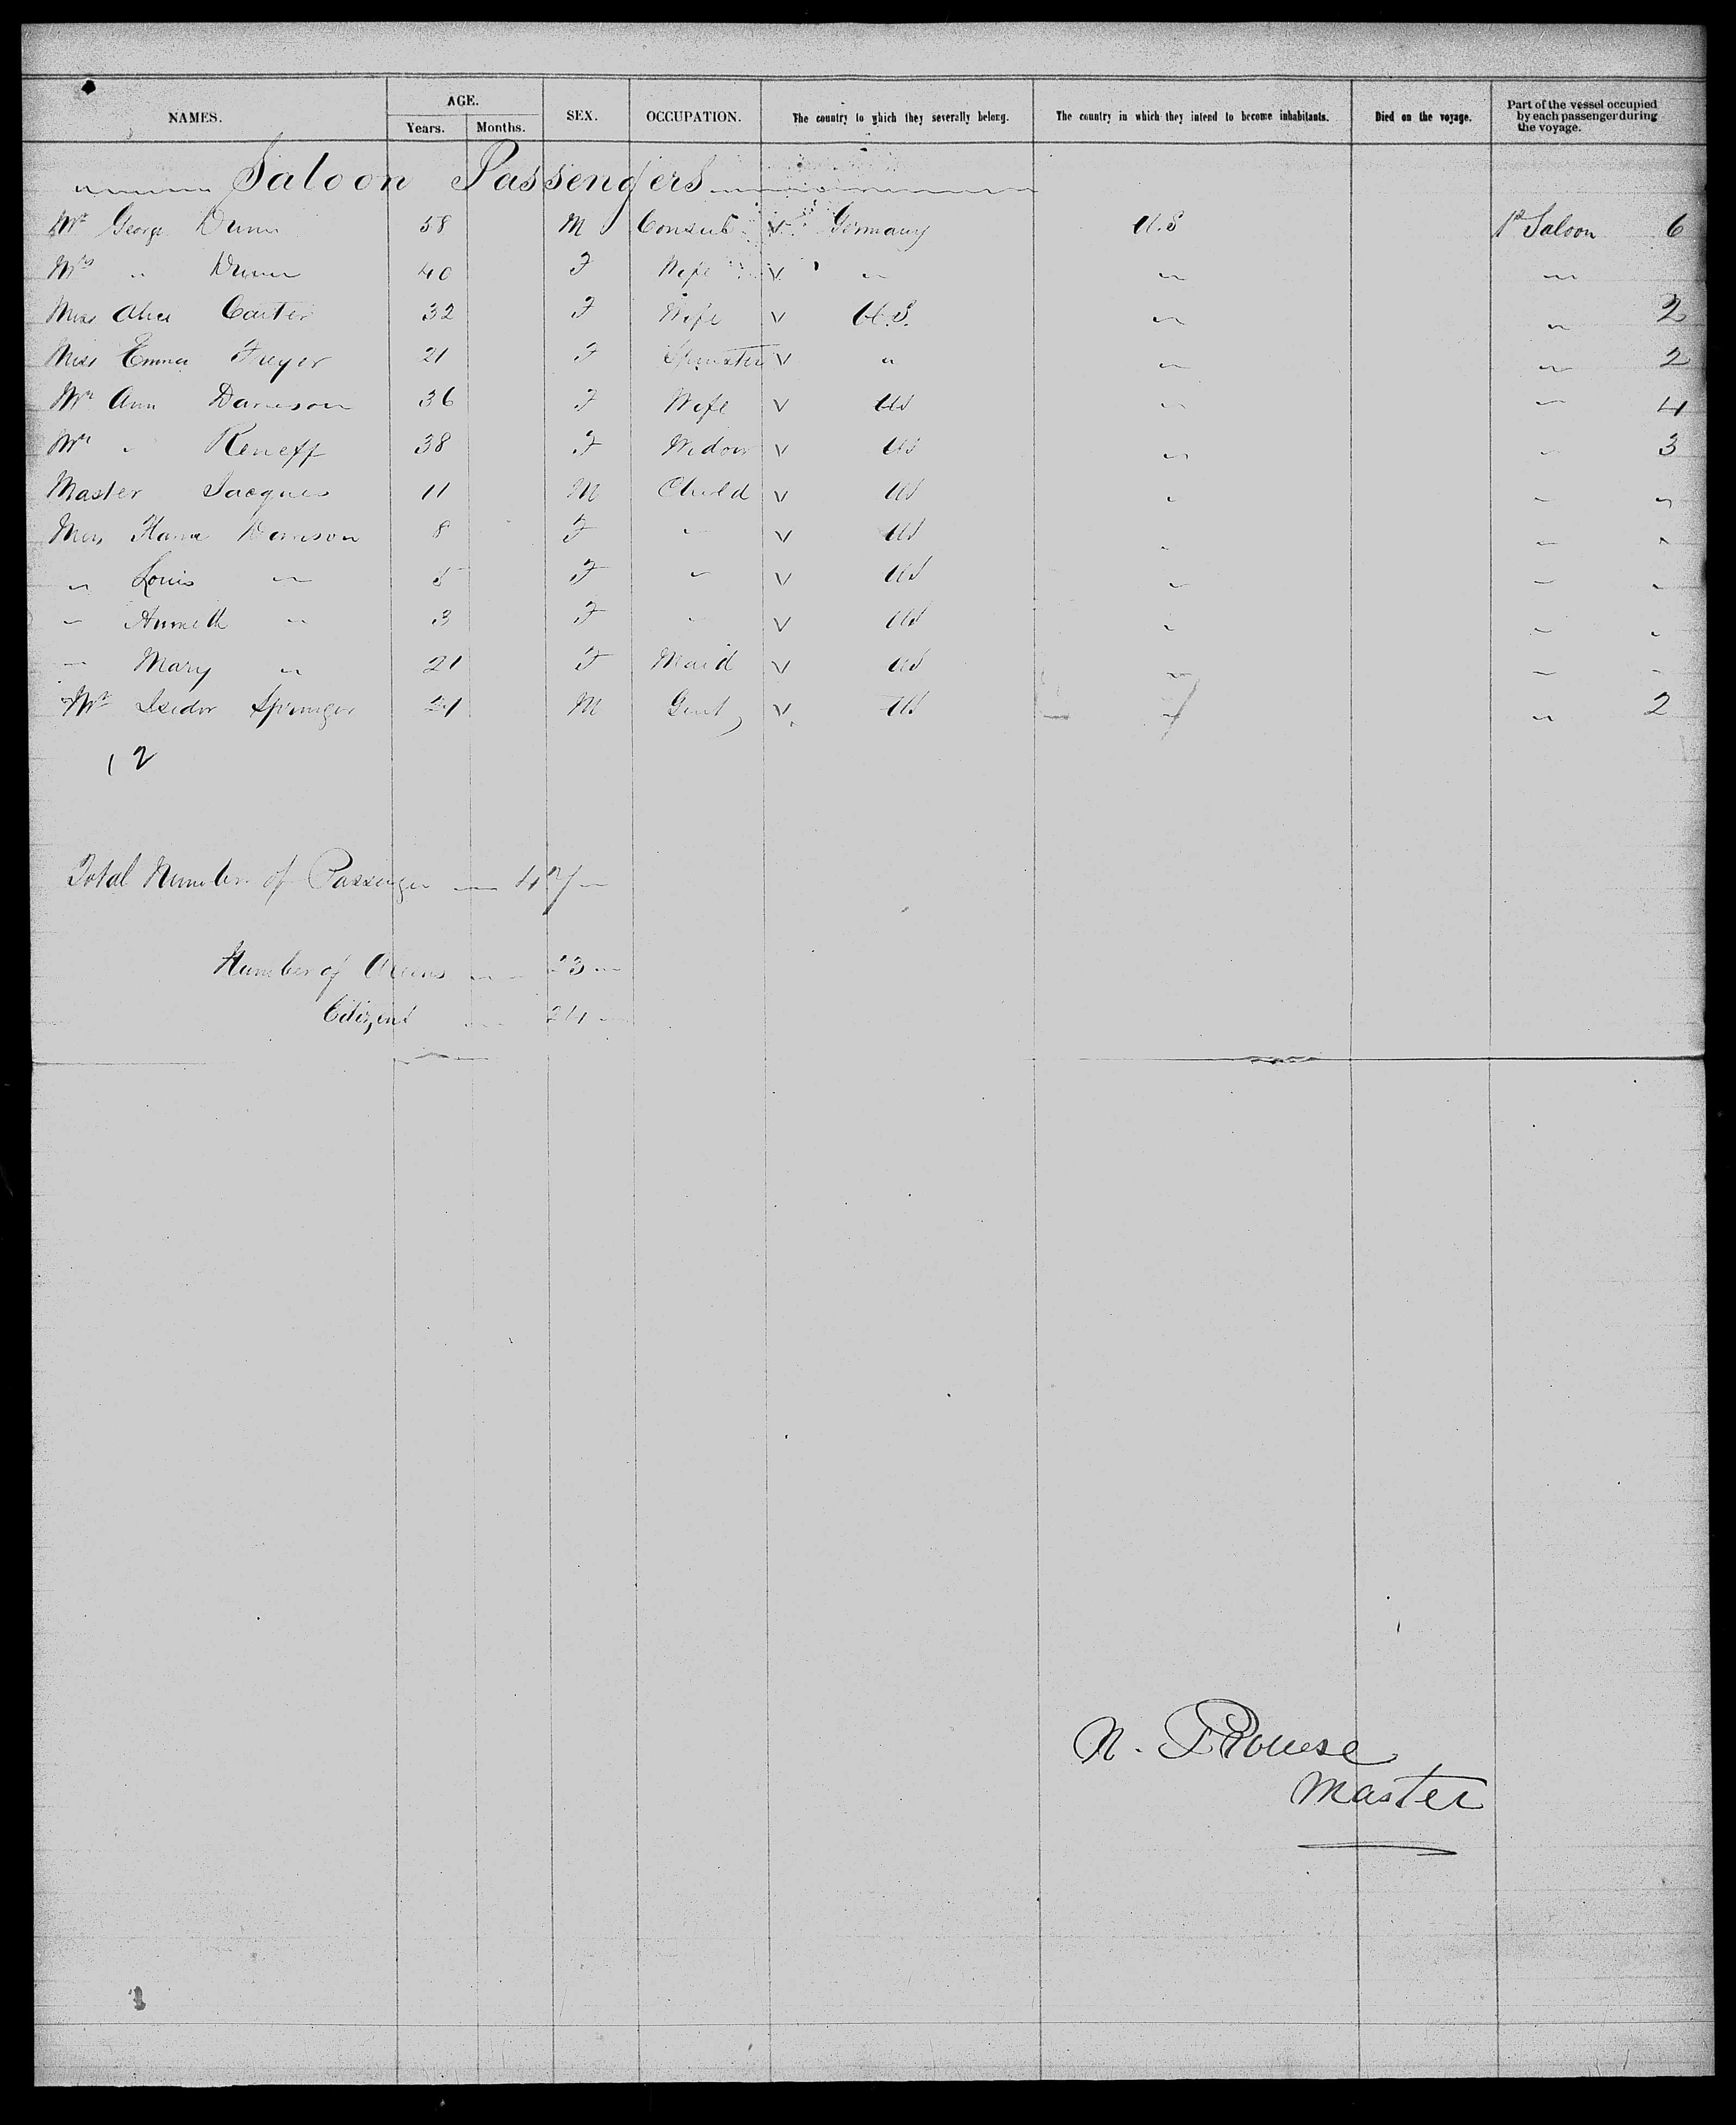 NAMES. AGE. SEX. OCCUPATION. The country to which they severally belong. The country in which they intend to become inhabitants. Died on the voyage. Part of the vessel occupied by each passenger during the voyage.
Years. Months.
Saloon Passengers
Mr George Dunn 58 M Consul v Germany U.S 1st Saloon 6
Mrs " Dunn 40 F Wife v " " "
Miss Alice Carter 32 F Wife v U.S. " " 2
Miss Emma 21 F Spinster v " " " 2
Mrs Ann Davison 36 F Wife v US " " 4
Mrs " 38 F Widow v US " " 3
Master Jacques 11 M Child v US " " "
Miss Davison 8 F " v US " " "
" Louis " 5 F " v US " " "
" " 3 F " v US " " "
" Mary " 21 F Maid v US " " "
Mr Isidor Springer 21 M Gent v US " " 2
12
Total Number of Passenger 47
Number of Aliens 23
Citizens 24
N. Prowse
Master